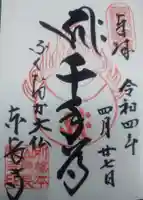 奉拝
令和四年
四月廿七日
千手尊
ふくおか大仏
東長寺